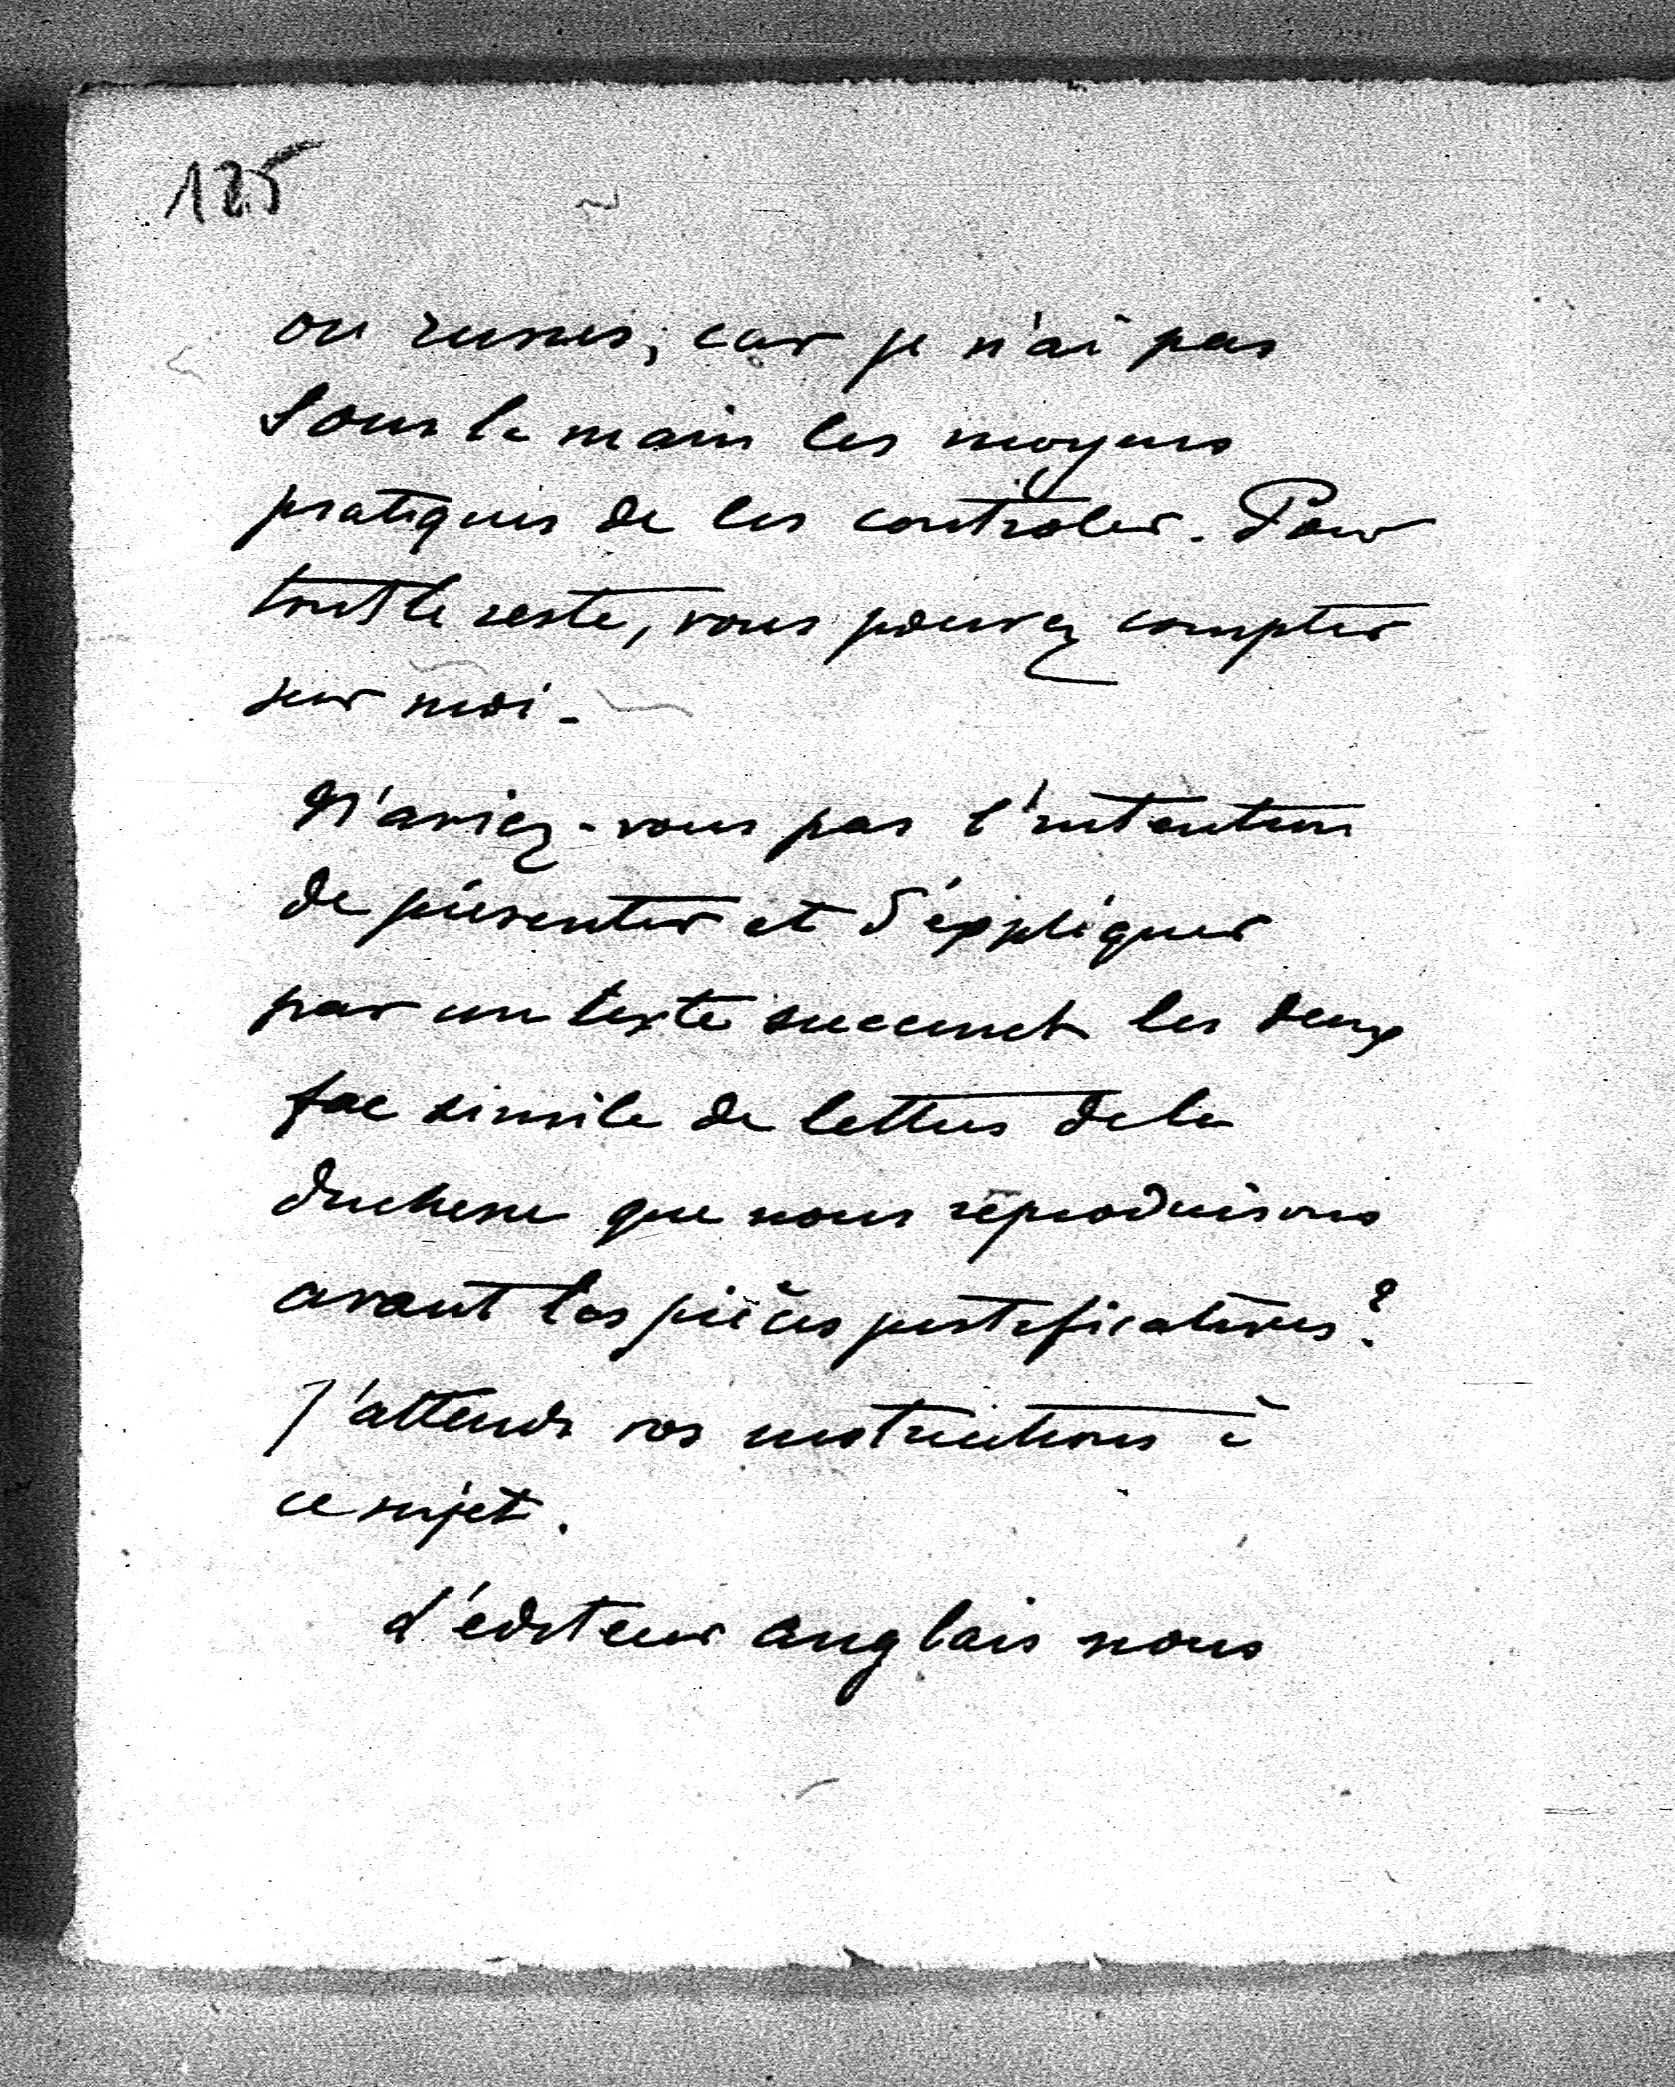 125
ou russes; car je n'ai pas
sous la main les moyens
pratiques de les contrôler. Pour
tout le reste, vous pouvez compter
sur moi.
N'aviez-vous pas l'intention
de présenter et d'expliquer
par un texte succinct les deux
fac simile de lettres de la
duchesse que nous reproduisons
avant les pièces justificatives?
J'attends vos instructions à
ce sujet.
L'éditeur anglais nous